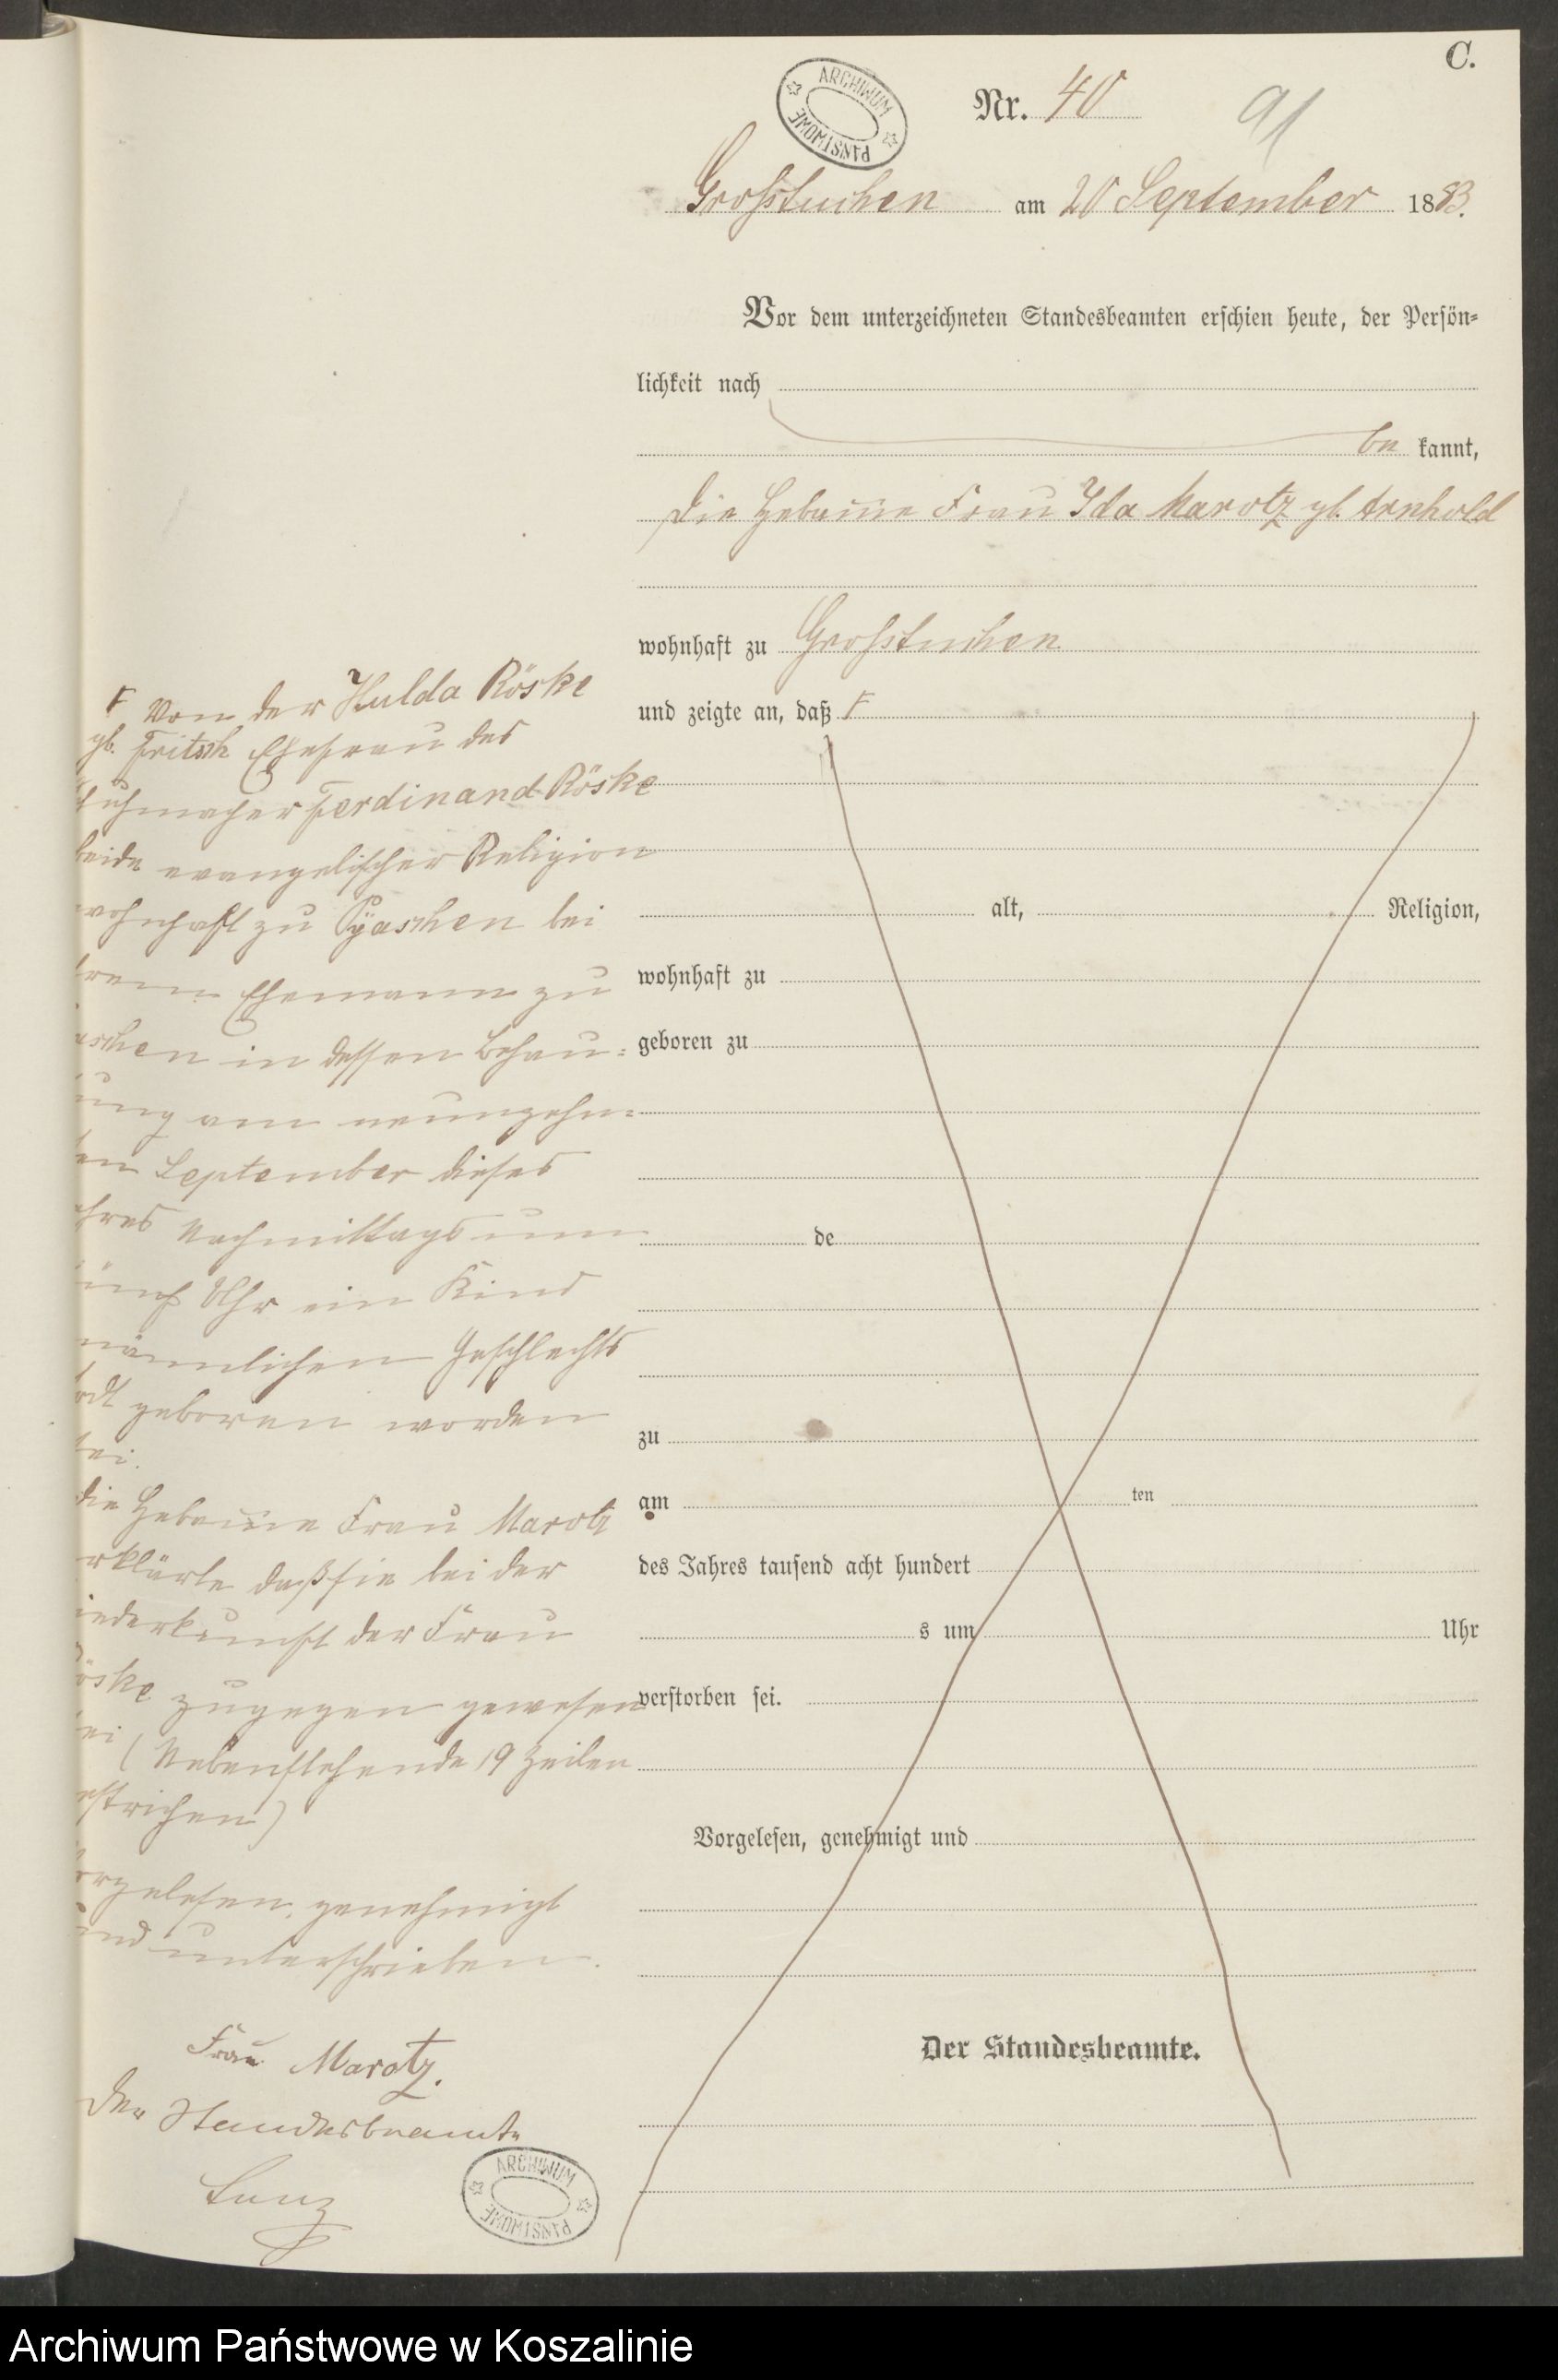 C.
ARCHIWUM PAŃSTWOWE
Nr. 40
91
Grosstuchen am 20 September 1883.
Vor dem unterzeichneten Standesbeamten erschien heute, der Persön-
lichkeit nach
be kannt,
die Hebam̅e Frau Ida Marotz gb. Arnhold
wohnhaft zu Grosstuchen
und zeigte an, daß F
alt, Religion,
wohnhaft zu
geboren zu
de
zu
am ten
des Jahres tausend acht hundert
s um Uhr
verstorben sei.
Vorgelesen, genehmigt und
Der Standesbeamte.
F von der Hulda Röske
gb. Fritsch Ehefrau des
uhmacher Ferdinand Röske
beide evangelischer Religion
wohnhaft zu Pyaschen bei
hrem Ehemann zu
aschen in dessen Behau-
ung am neunzehn-
ten September dieses
ahres Nachmittags um
fünf Uhr ein Kind
männlichen Geschlechts
todt geboren worden
sei.
die Hebam̅e Frau Marotz
rklärte daß sie bei der
iederkunft der Frau
öske zugegen gewesen
sei (Nebenstehende 19 Zeilen
estrichen)
orgelesen, genehmigt
und unterschrieben.
Frau Marotz.
Der Standesbeamte
Lunz
ARCHIWUM PAŃSTWOWE
Archiwum Państwowe w Koszalinie